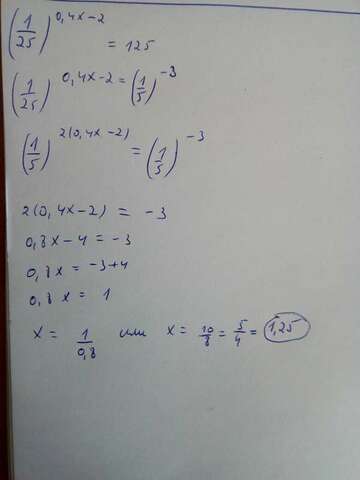 (1/25)^0,4x-2 = 125
(1/25)^0,4x-2 = (1/5)^-3
(1/5)^2(0,4x-2) = (1/5)^-3
2(0,4x-2) = -3
0,8x-4 = -3
0,8x = -3+4
0,8x = 1
x = 1/0,8 или x = 10/8 = 5/4 = 1,25